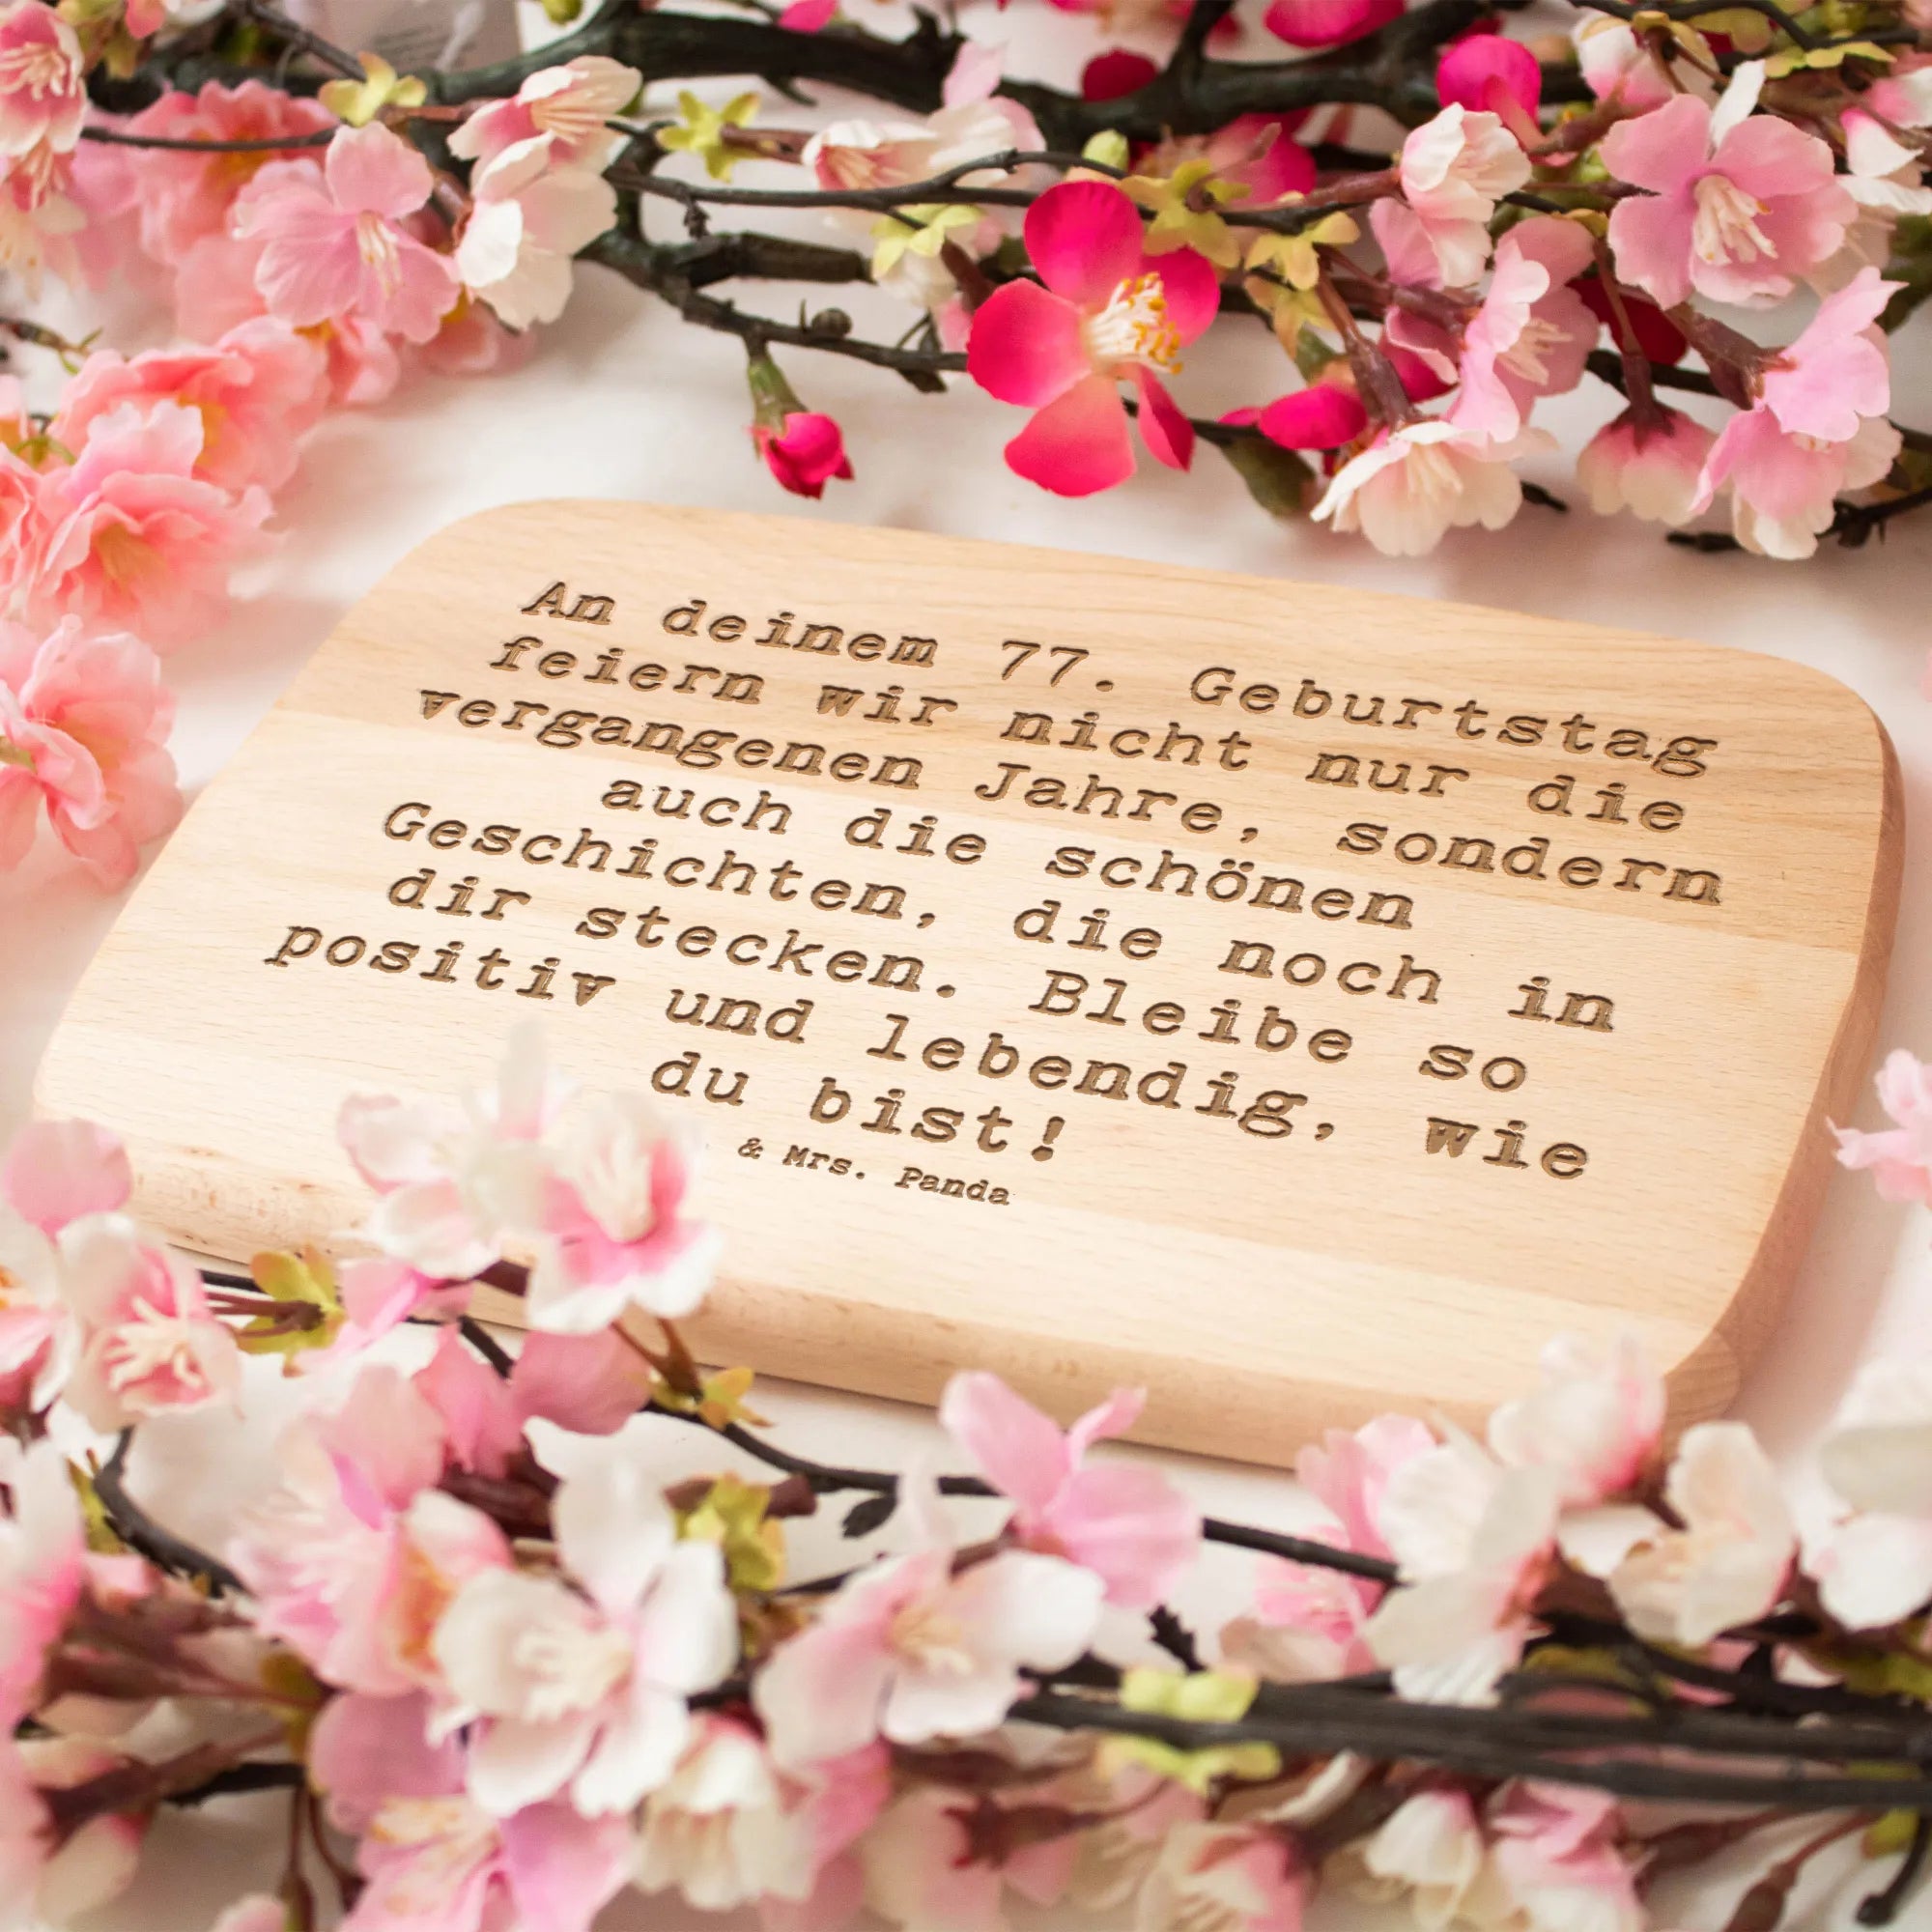 An deinem 77. Geburtstag
feiern wir nicht nur die
vergangenen Jahre, sondern
auch die schönen
Geschichten, die noch in
dir stecken. Bleibe so
positiv und lebendig, wie
du bist!
& Mrs. Panda